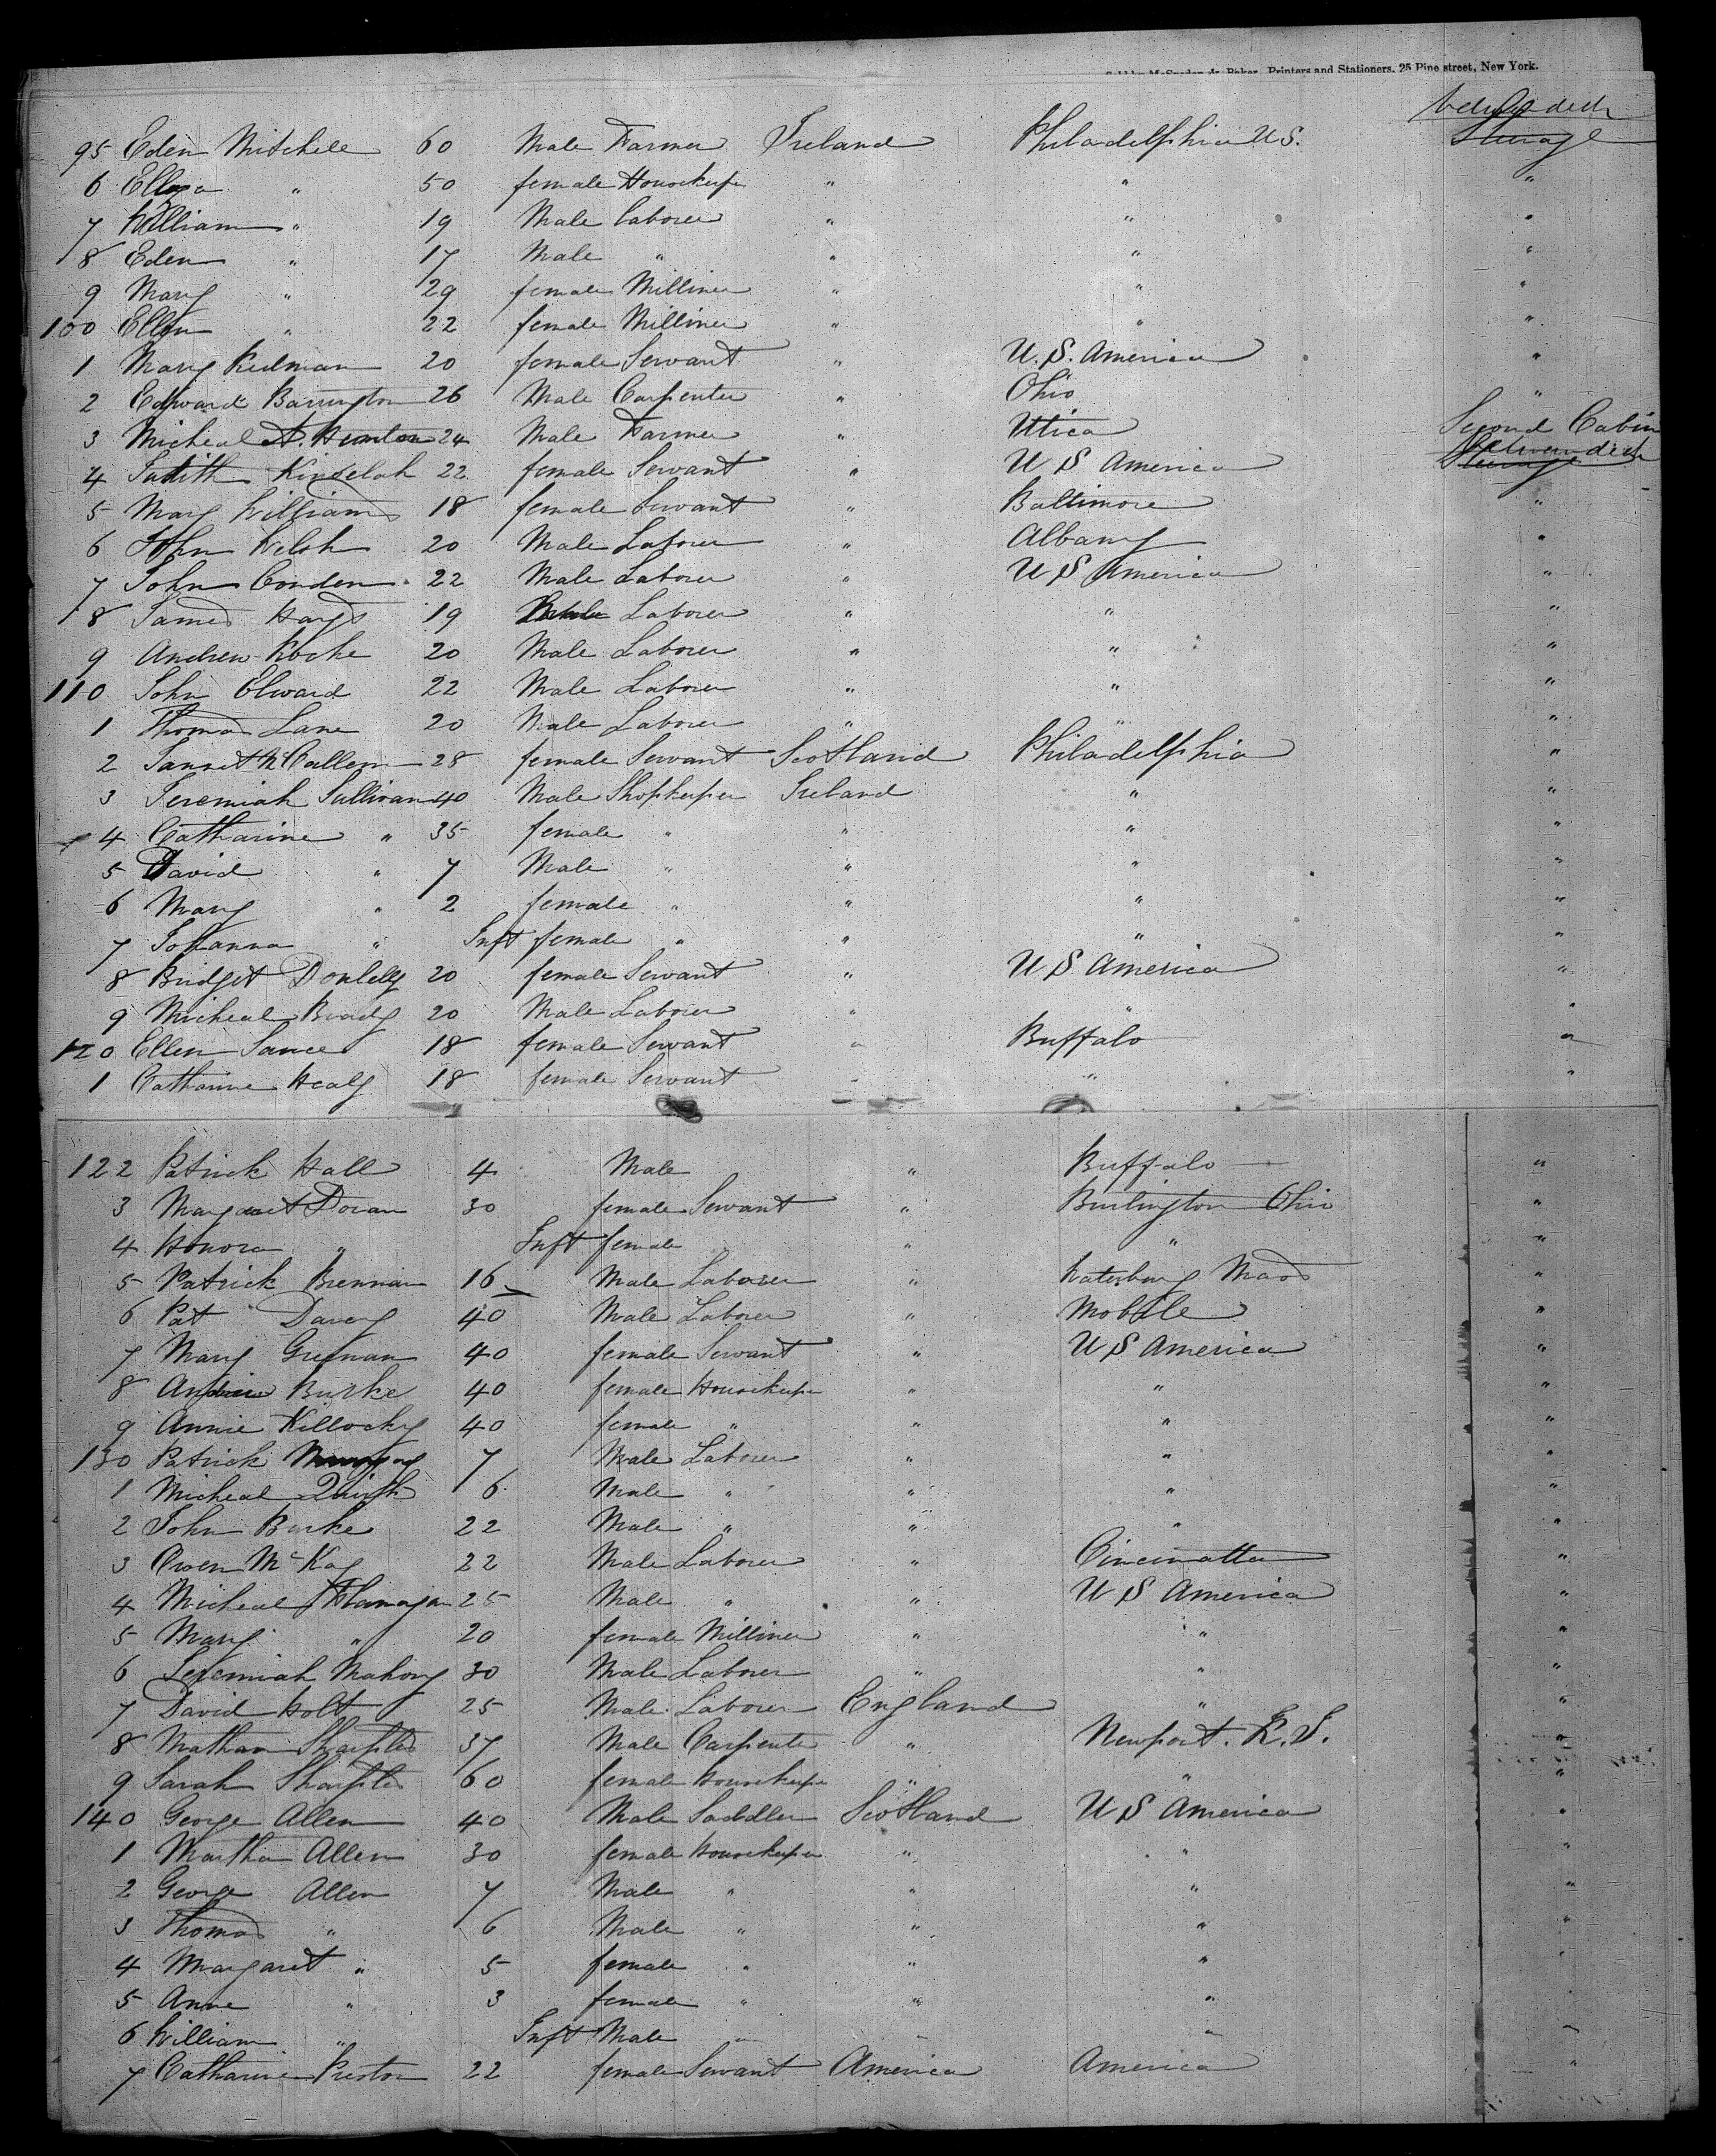 Printers and Stationers, 25 Pine street, New York.
between deck
95 Eden Mitchell 60 Male Farmer Ireland Philadelphia U.S. Steerage
6 Eliza " 50 female Housekeeper " " "
7 William " 19 Male Laborer " " "
8 Eden " 17 Male " " " "
9 Mary " 29 female Milliner " " "
100 Ellen " 22 female Milliner " " "
1 Mary Redman 20 female Servant " U.S. America "
2 Edward Barrington 26 Male Carpenter " Ohio "
3 Micheal A. 24 Male Farmer " Utica Second Cabin
4 Judith 22 female Servant " U S America between deck Steerage
5 Mary Williams 18 female Servant " Baltimore "
6 John Welsh 20 Male Laborer " Albany "
7 John Conden 22 Male Laborer " U S America "
8 James Hays 19 Laborer " " "
9 Andrew Roche 20 Male Laborer " " "
110 John Elward 22 Male Laborer " " "
1 Thomas Lane 20 Male Laborer " " "
2 Jannet McCallem 28 female Servant Scotland Philadelphia "
3 Jeremiah Sullivan 40 Male Shopkeeper Ireland " "
4 Catharine " 35 female " " " "
5 David " 7 Male " " " "
6 Mary " 2 female " " " "
7 Johanna " Inft female " " " "
8 Bridget Donlelly 20 female Servant " U S America "
9 Micheal Brady 20 Male Laborer " " "
120 Ellen 18 female Servant " Buffalo "
1 Catharine Healy 18 female Servant " " "
122 Patrick Hall 4 Male " Buffalo "
3 Margaret Doran 30 female Servant " Burlington Ohio "
4 Honora " Inft female " " "
5 Patrick Brennan 16 Male Laborer " Waterbury Mass "
6 Pat Darcy 40 Male Laborer " Mobile "
7 Mary Greenan 40 female Servant " U S America "
8 Burke 40 female Housekeeper " " "
9 Annie Killocky 40 female " " " "
130 Patrick 7 Male Laborer " " "
1 Micheal Quirk 6 Male " " " "
2 John Burke 22 Male " " " "
3 Owen McKay 22 Male Laborer " Cincinatta "
4 Micheal Flanagan 25 Male " " U S America "
5 Mary " 20 female Milliner " " "
6 Jeremiah Mahony 30 Male Laborer " " "
7 David Holt 25 Male Laborer England " "
8 Nathan Sharples 37 Male Carpenter " Newport. R.I. "
9 Sarah Sharples 60 female Housekeeper " " "
140 George Allen 40 Male Saddler Scotland U S America "
1 Martha Allen 30 female Housekeeper " " "
2 George Allen 7 Male " " " "
3 Thomas " 6 Male " " " "
4 Margaret " 5 female " " " "
5 Anne " 3 female " " " "
6 William " Inft Male " " " "
7 Catharine Preston 22 female Servant America America "